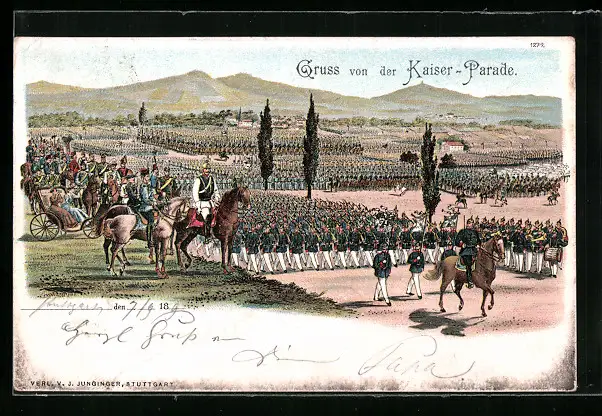 1279.
Gruss von der Kaiser-Parade.
Stuttgart den 7/9 18 99
Herzl. Gruß v.
Dein Papa
VERL. V. J. JUNGINGER, STUTTGART